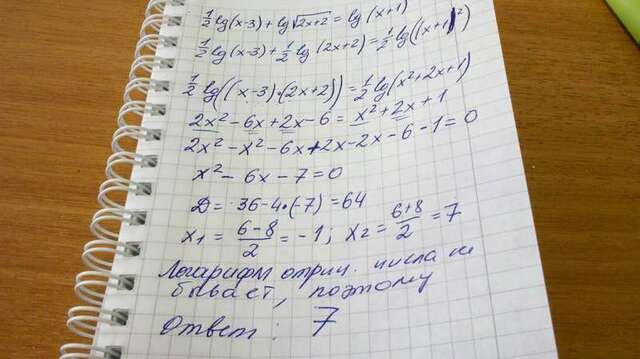 ½lg(x-3)+lg√2x+2=lg(x+1)
½lg(x-3)+½lg(2x+2)=½lg((x+1)²)
½lg((x-3)·(2x+2))=½lg(x²+2x+1)
2x²-6x+2x-6=x²+2x+1
2x²-x²-6x+2x-2x-6-1=0
x²-6x-7=0
D=36-4·(-7)=64
x₁=(6-8)/2=-1; x₂=(6+8)/2=7
Логарифм отриц. числа не
бывает, поэтому
Ответ: 7